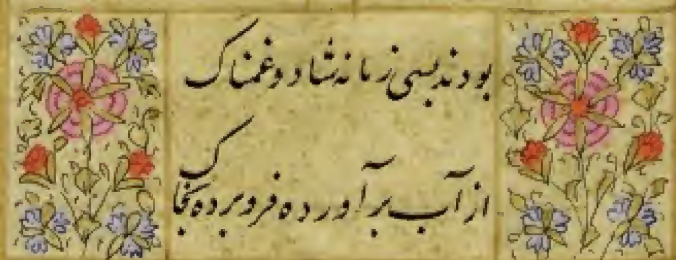 بودند بسی زمانه شاد و غمناک
از آب برآورده فرو برده بخاک